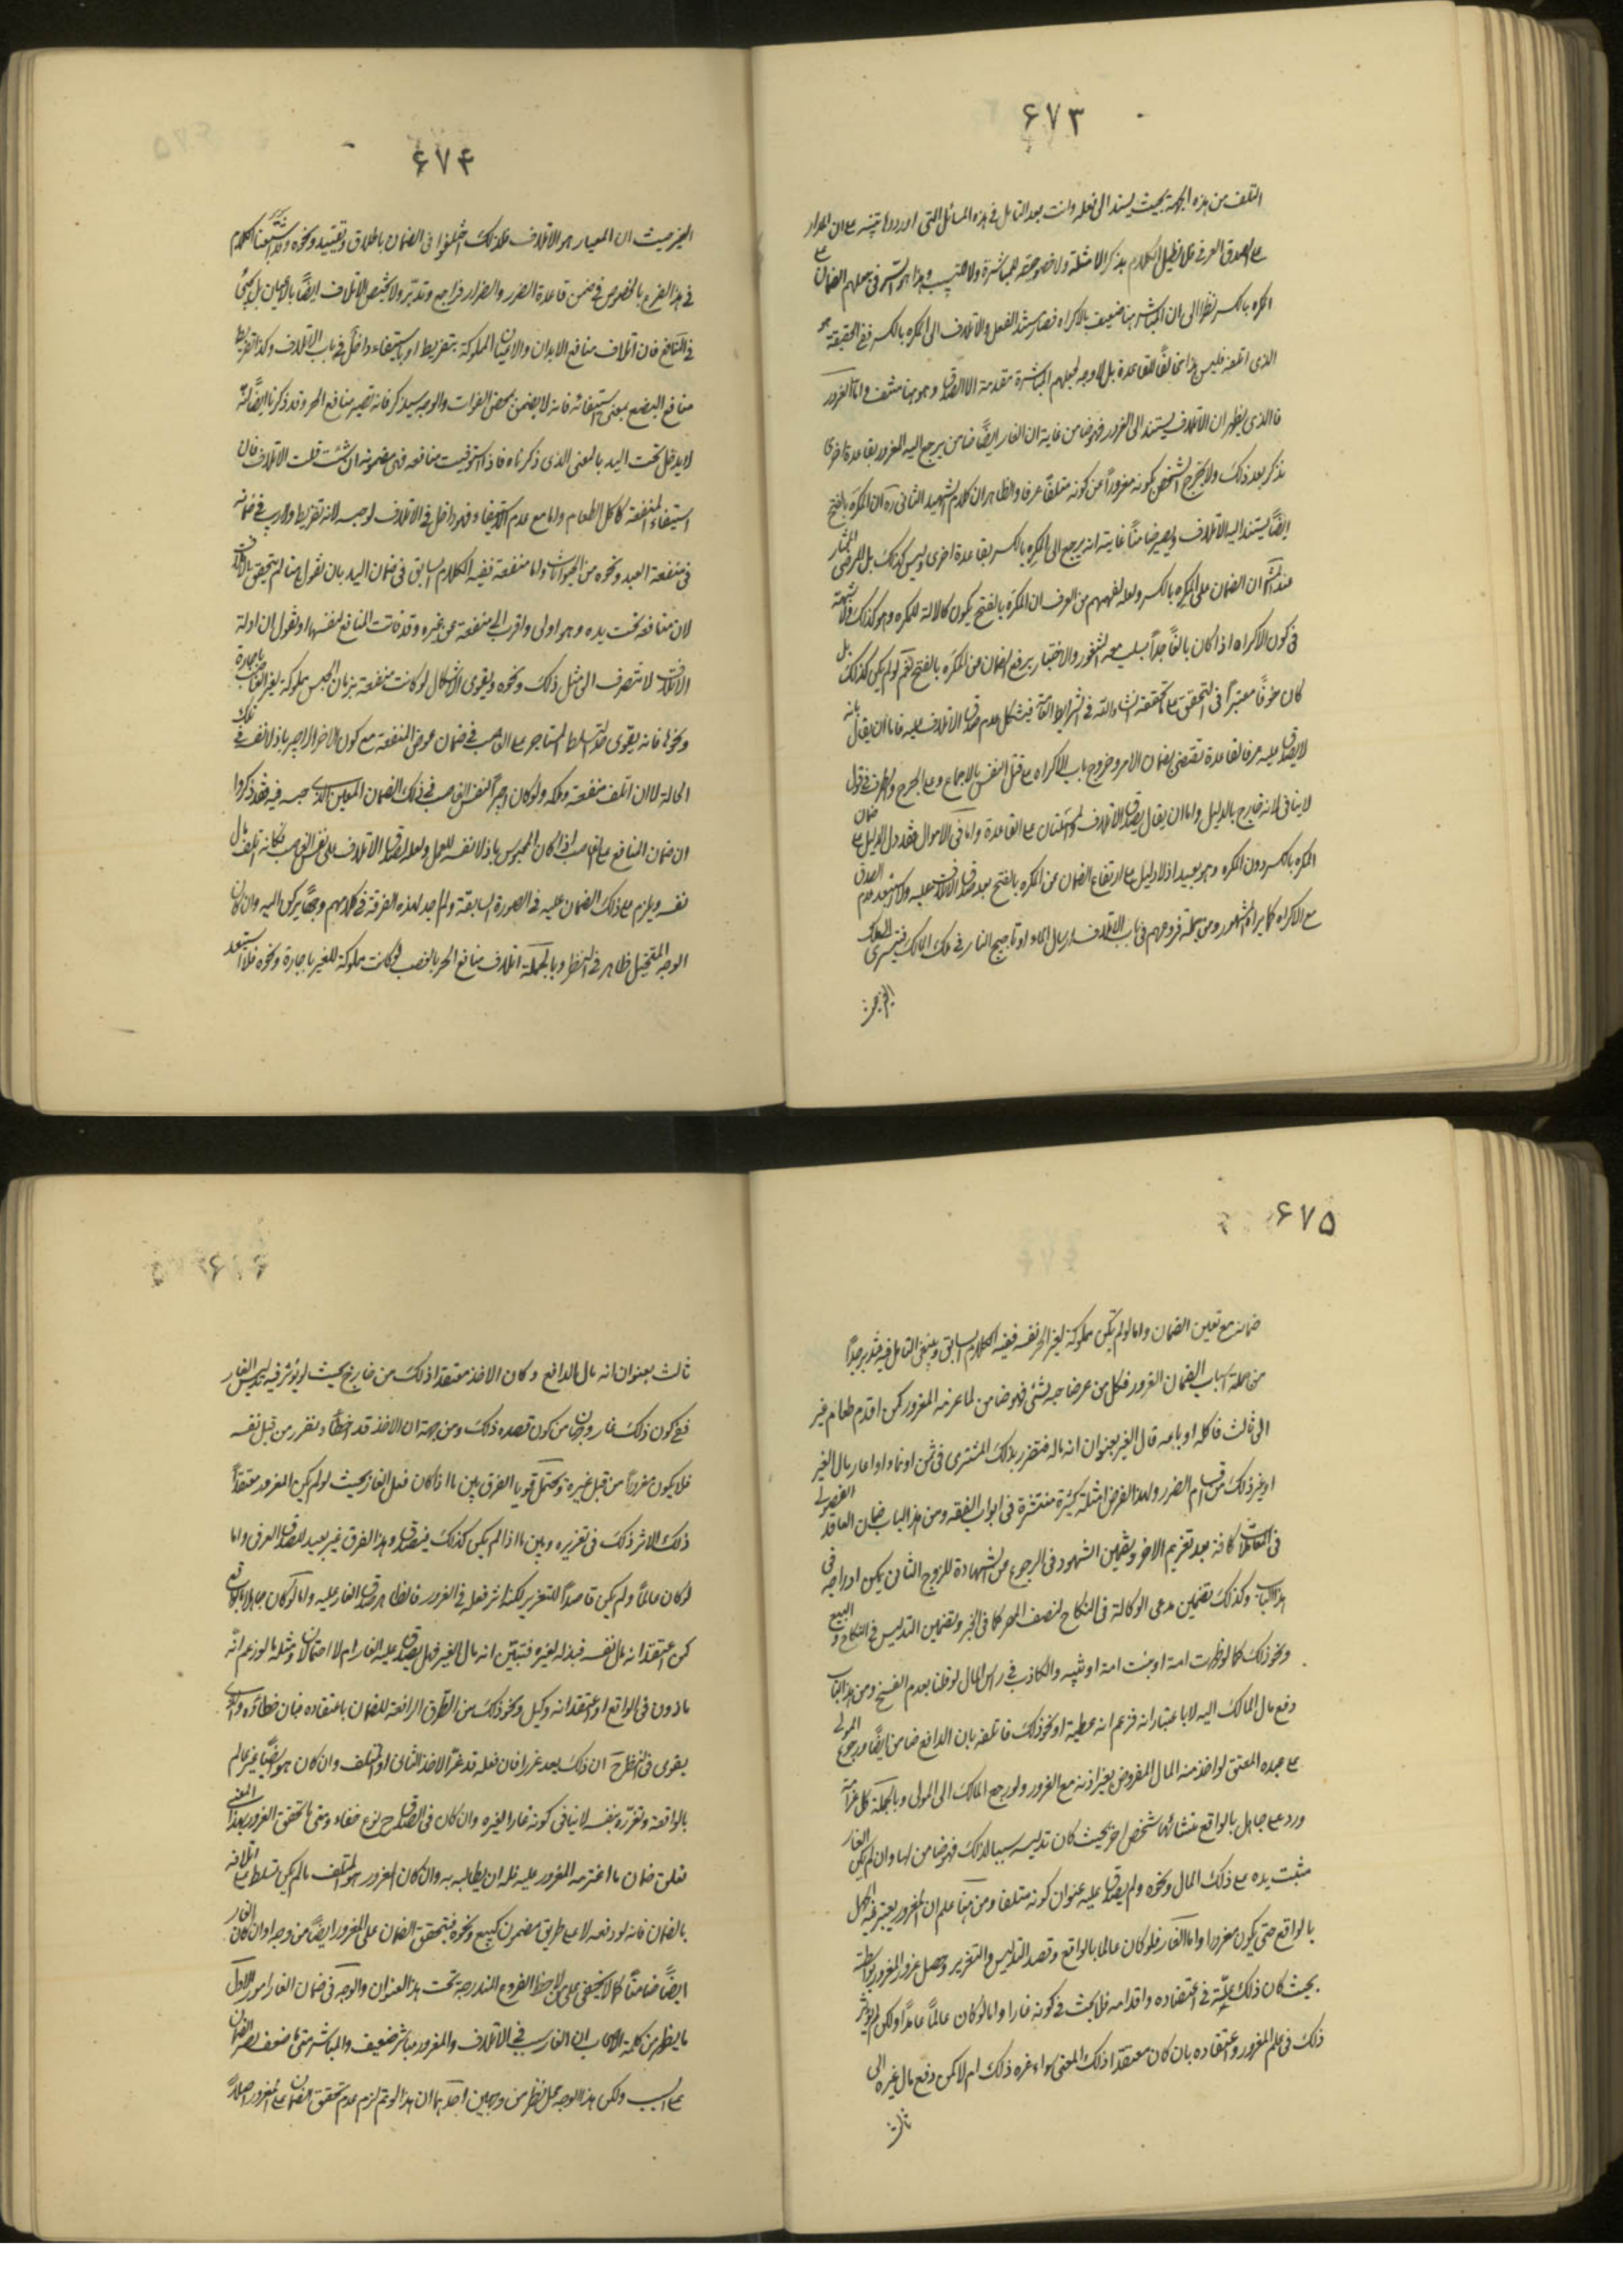 ۶۷۳
التلف من هذه الجهة بحيث يسند الى فعله وانت بعد التامل في هذه المسائل التي اوردوها تتنبه على ان المدار
على الصدق العرفي فلا نطيل الكلام بذكر الامثلة ولا خصوصية للمباشرة ولا التسبيب وهذا هو السر في جعلهم الضمان على
المكره بالكسر نظرا الى ان المباشر هنا ضعيف بالاكراه فصار يسند الفعل والاتلاف الى المكره بالكسر ففي الحقيقة هو
الذي اتلفه فليس هذا مخالفا للقاعدة بل لا وجه لجعلهم المباشرة مقدمة الا الصدق وهو هنا منتف واما الغرور
فالذي يظهر ان الاتلاف يستند الى المغرور فهو ضامن غايته ان الغار ايضا ضامن يرجع اليه المغرور بقاعدة اخرى
نذكر بعد ذلك ولا يخرج الشخص بكونه مغرورا عن كونه متلفا عرفا والظاهر ان كلام الشهيد الثاني ره ان المكره بالفتح
ايضا يستند اليه الاتلاف ويصير ضامنا غايته انه يرجع الى المكره بالكسر بقاعدة اخرى وليس كذلك بل المرضي المختار
عندنا ان الضمان على المكره بالكسر ولعله لفهمهم من العرف ان المكره بالفتح يكون كالالة للمكره وهو كذلك ولا شبهة
في كون الاكراه اذا كان بالغا جدا يسلب معه الشعور والاختيار يرفع الضمان عن المكره بالفتح نعم لو لم يكن كذلك بل
كان خوفا معتبرا في التحقق على ما نحققه انشاء الله في الشرايط العامة فيشكل عدم صدق الاتلاف عليه فاما ان يقال بانه
لا يصدق عليه عرفا لقاعدة تقتضي ضمان الامر وخروج باب الاكراه على قتل النفس بالاجماع وعلى الجرح والطرف في قول
لا ينافي لانه خارج بالدليل واما ان يقال بصدق الاتلاف فالمسئلتان على القاعدة واما في الاموال فقد دل الدليل على ضمان
المكره بالكسر دون المكره وهو بعيد اذ لا دليل على ارتفاع الضمان عن المكره بالفتح بعد صدق الاتلاف عليه ولا استبعد عدم الصدق
مع الاكراه كما يراه المشهور ومن جملة فروعهم في باب الاتلاف ارسال الماء او تاجيج النار في ملك المالك فيسري الى ملك
الغير حيث
۶۷۴
الغير حيث ان المعيار هو الاتلاف فلذلك اختلفوا في الضمان باطلاق وتقييد ونحوه وقد اشبعنا الكلام
في هذا الفرع بالخصوص في ضمن قاعدة الضرر والضرار فراجع وتدبر ولا يختص الاتلاف ايضا بالاعيان بل يجيء
في المنافع فان اتلاف منافع الابدان والاعيان المملوكة بتفريط او باستيفاء داخل في باب الاتلاف وكذا تفريط
منافع البضع بمعنى استيفائه فانه لا يضمن بمحض الفوات والوجه سيذكر فانه نصير منافع الحر وقد ذكرنا ايضا انه
لا يدخل تحت اليد بالمعنى الذي ذكرناه فاذا استوفيت منافعه فهي مضمونة ان شئت قلت الاتلاف فان
استيفاء المنفعة كاكل الطعام واما مع عدم الاستيفاء فهو داخل في الاتلاف لوجه لانه تفريط ولا ريب في ضمانه
في منفعة العبد ونحوه من الحيوانات واما منفعة نفسه الكلام السابق في ضمان اليد بان نقول هنا لم يتحقق الاتلاف
لان منافعه تحت يده وهو اولى واقرب الى منفعة من غيره وقد فاتت المنافع لنفسها او نقول ان ادلة
الاتلاف لا تنصرف الى مثل ذلك ونحوه ويقوى الاشكال لو كانت منفعته بزمان الحبس مملوكة لغير الغاصب باجارة
ونحوها فانه يقوى هنا تسلط المستاجر على الغاصب في ضمان عوض المنفعة مع كون الاخر الاجير باذلا نفسه في تلك
الحالة لان اتلف منفعة وملكه ولو كان اجيرا لنفس الغاصب في ذلك الضمان المعين الذي حبسه فيه فقد ذكروا
ان ضمان المنافع على الغاصب اذا كان المحبوس باذلا نفسه للعمل ولعله لصدق الاتلاف على نفس الغاصب فكانه اتلف مال
نفسه ويلزم على ذلك الضمان عليه في الصورة السابقة ولم اجد لهذه الفرقة في كلامهم وجها يركن اليه وان كان
الوجه المتخيل ظاهر في النظر وبالجملة اتلاف منافع الحر بالغصب لو كانت مملوكة للغير باجارة ونحوه فلا استبعد
۶۷۵
ضمانه مع تعين الضمان واما لو لم تكن مملوكة لغير الحر نفسه ففيه الكلام السابق وينبغي التامل فيه فتدبر جدا
من جملة اسباب الضمان الغرور فكل من غر صاحبه بشيء فهو ضامن لما غرمه المغرور كمن اقدم طعام غير
الى ثالث فاكله او باعه مال الغير بعنوان انه ماله فتضرر بذلك المشتري في ثمن او نماء او اعار مال الغير
او غير ذلك من اقسام الضرر ولهذا الفرض امثلة كثيرة منتشرة في ابواب الفقه ومن هذا الباب ضمان العاقد الفضولي
في العقلات كافة بعد تغريم الاخر وتضمين الشهود في الرجوع عن الشهادة للزوج الثاني يمكن ادراجه في
هذا الباب وكذلك تضمين مدعي الوكالة في النكاح لنصف المهر كما في الخبر وتضمين التدليس في النكاح والبيع
ونحو ذلك كما لو ظهرت امة او بنت امة او ثيبه والكاذب في راس المال لو قلنا بعدم الفسخ ومن هذا الباب
دفع مال المالك اليه لا باعتبار انه فزعم انه عطية او نحو ذلك فاتلفه بان الدافع ضامن ايضا ورجوع المولى
على عبده المعتق لو اخذ منه المال المفروض بغير اذنه مع الغرور ولو رجع المالك الى المولى وبالجملة كل غرامة
ورد على جاهل بالواقع منشائها شخص اخر بحيث كان تدليسه سببا لذلك فهو ضامن لها وان لم يكن الغار
مثبت يده على ذلك المال ونحوه ولم يصدق عليه عنوان كونه متلفا ومن هنا علم ان المغرور يعتبر فيه الجهل
بالواقع حتى يكون مغرورا واما الغار فلو كان عالما بالواقع وقصد التدليس والتغرير وحصل غرور المغرور بواسطة
بحيث كان ذلك علة في اعتقاده واقدامه فلا بحث في كونه غارا واما لو كان عالما عامدا ولكن لم يؤثر
ذلك في علم المغرور واعتقاده بان كان معتقدا ذلك المعنى سواء غره ذلك ام لا كمن دفع مال غيره الى
ثالث
ثالث بعنوان انه مال الدافع وكان الاخذ معتقدا ذلك من خارج بحيث لو يؤثر فيه تدليس الغار
ففي كون ذلك غارا وجهان من كون قصده ذلك ومن جهة ان الاخذ قد اخطأ وتضرر من قبل نفسه
فلا يكون مغرورا من قبل غيره ويحتمل قويا الفرق بين ما اذا كان فعل الغار بحيث لو لم يكن المغرور معتقدا
ذلك لاثر ذلك في تغريره وبين ما اذا لم يكن كذلك فيصدق وهذا الفرق غير بعيد للصدق العرفي واما
لو كان عالما ولم يكن قاصدا للتغرير لكنه اثر فعله في الغرور فالظاهر صدق الغار عليه واما لو كان جاهلا بالواقع
كمن اعتقد انه مال نفسه فبذله لغيره فتبين انه مال الغير فهل يصدق عليه الغار ام لا احتمالان ومثله ما لو زعم انه
ماذون في الواقع او اعتقد انه وكيل ونحو ذلك من الطرق الرافعة للضمان باعتقاده فبان خطاؤه والذي
يقوى في النظر ح ان ذلك يعد غررا فان فعله قد غر الاخذ الثاني او المتلف وان كان هو ايضا غير عالم
بالواقعة وتغرره بنفسه لا ينافي كونه غارا لغيره وان كان في الصدق ح نوع خفاء ومتى ما تحقق الغرور بهذا المعنى
تعلق ضمان ما اغترمه المغرور عليه فله ان يطالبه به وان كان المغرور هو المتلف ما لم يكن تسلط على اتلافه
بالضمان فانه لو دفعه لا على طريق مضمون كبيع ونحوه فيتحقق الضمان على المغرور ايضا من وجه وان كان الغار
ايضا ضامنا كما لا يخفى على من لاحظ الفروع المندرجة تحت هذا العنوان والوجه في ضمان الغار امور الاول
ما يظهر من كلمة الاصحاب ان الغار سبب في الاتلاف والمغرور مباشر ضعيف والمباشر متى ما ضعف صار الضمان
على السبب ولكن هذا الوجه محل نظر من وجهين احدهما ان هذا لو تم لزم عدم تحقق الضمان على المغرور اصلا